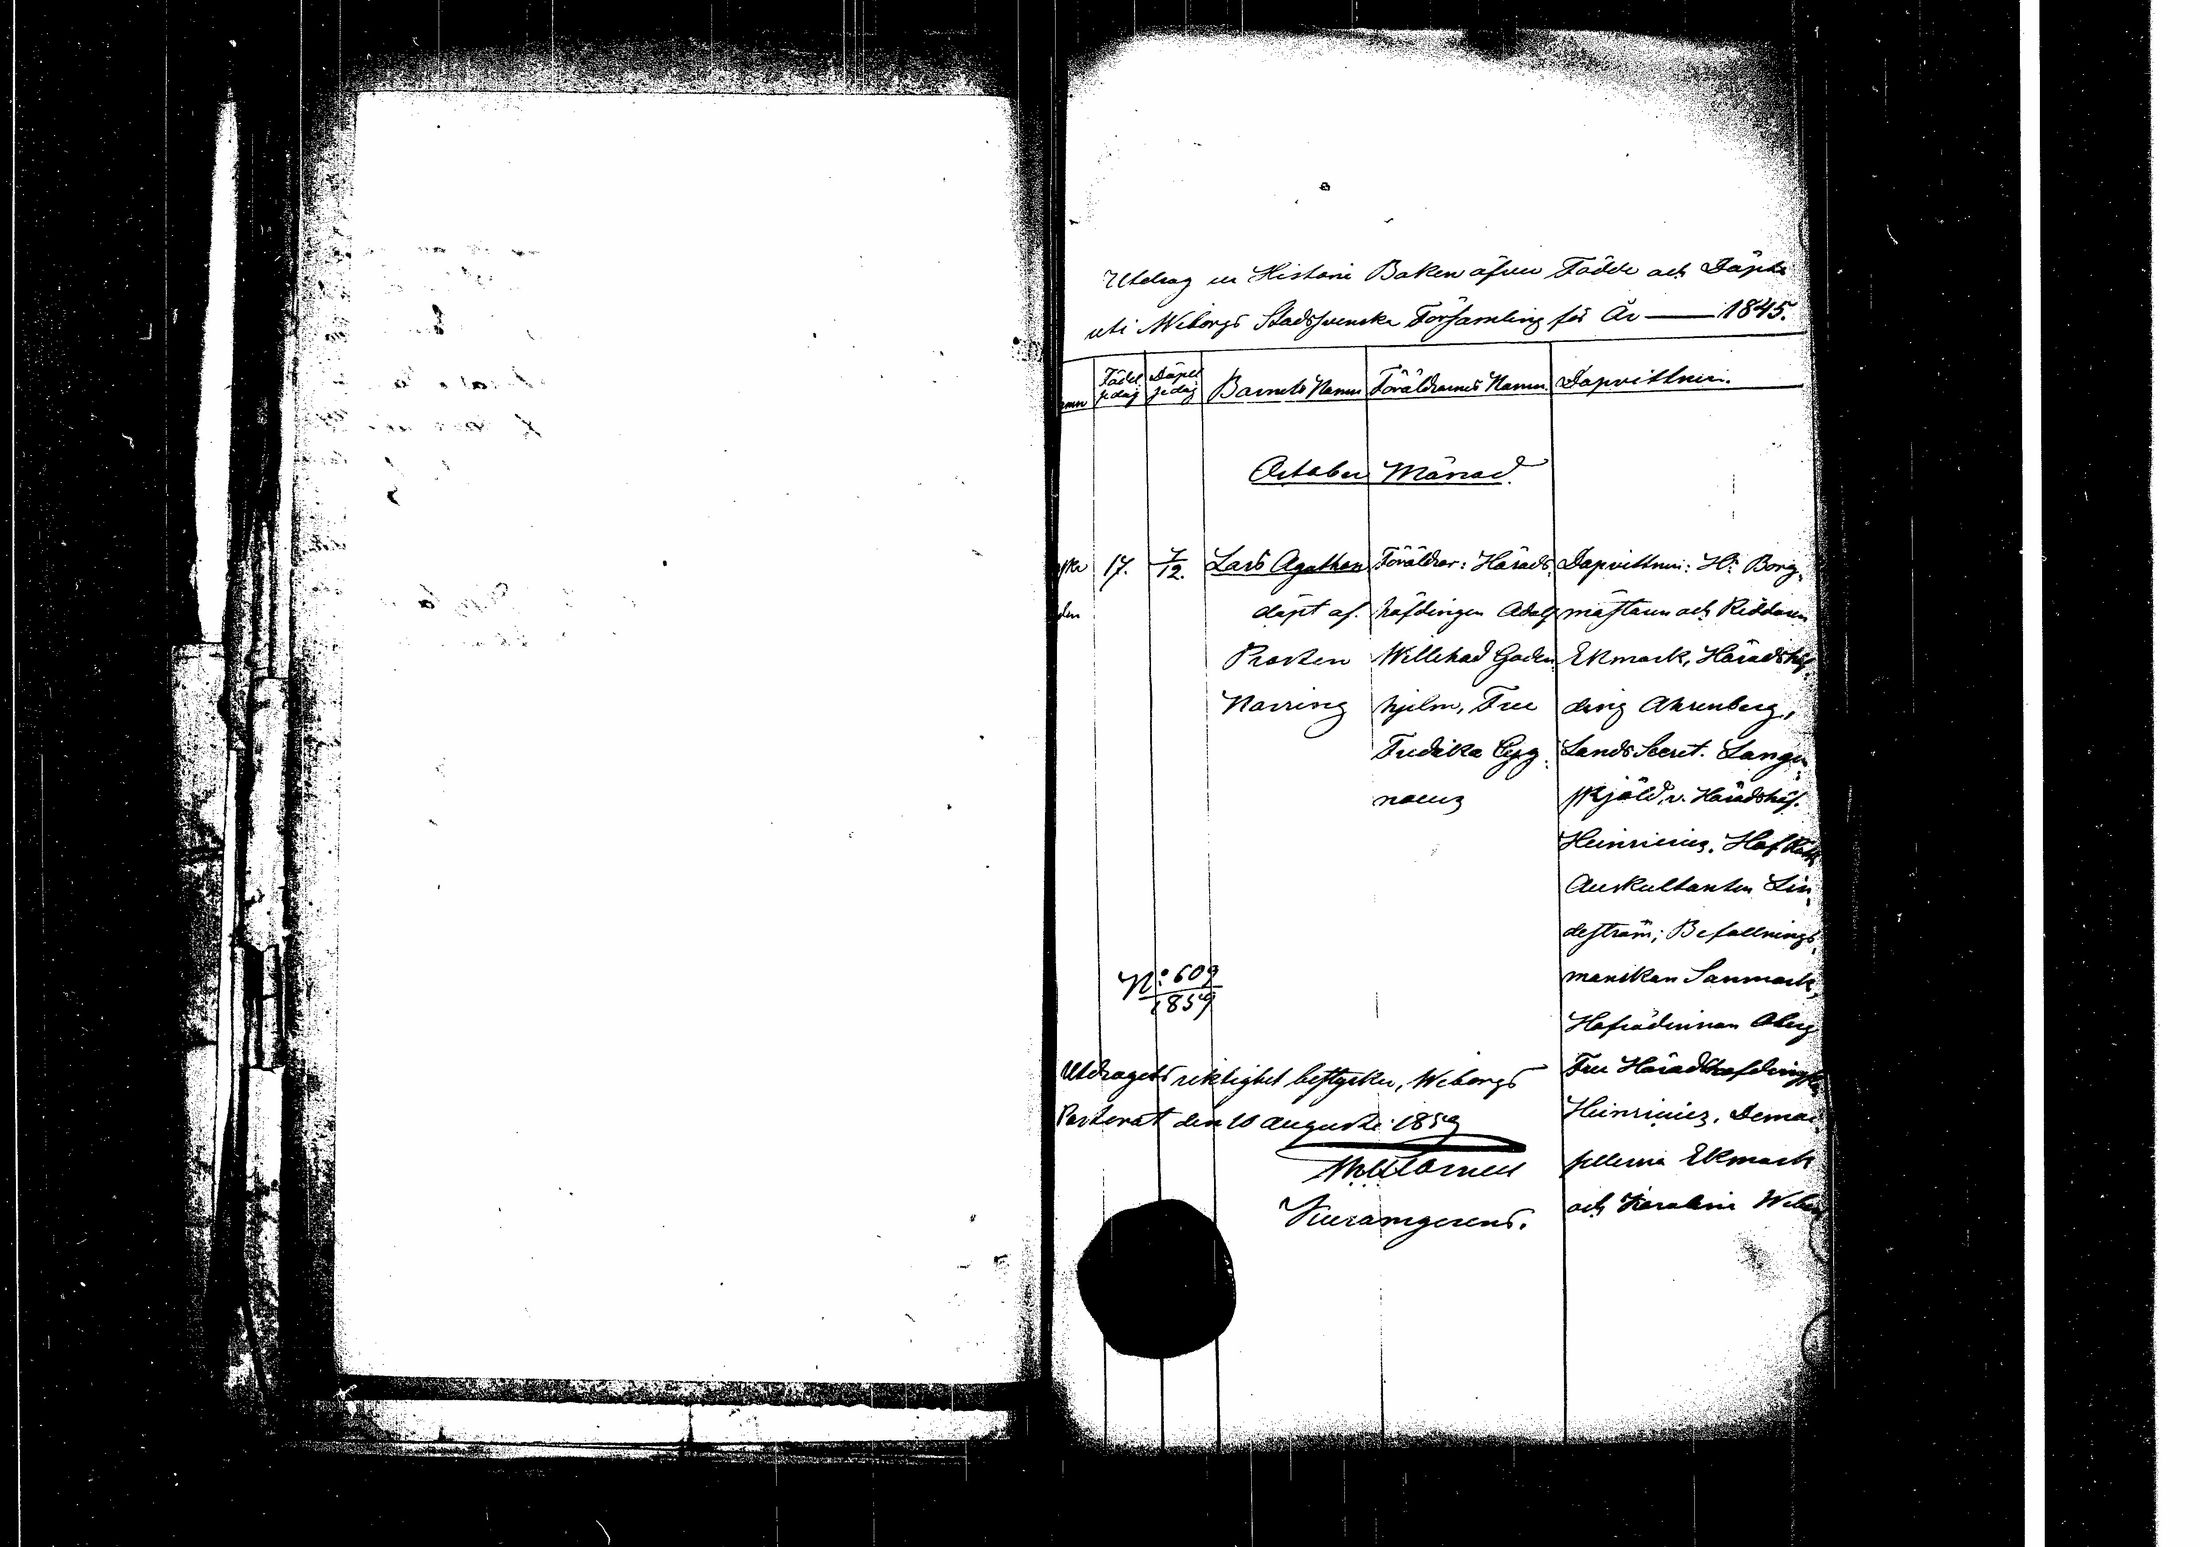 Utdrag ur Historie Boken öfver Födde och Döpte
uti Wiborgs Stads svenska Församling för År — 1845.
Födel
sedag
Döpel
sedag
Barnets Namn
Föräldrarnes Namn
Dopvittnen.
October Månad.
17.
7/12.
Lars Agathon
döpt af
Prosten
Norring
Föräldrar: Härads-
höfdingen Adolf
Willehad Gaden-
hjelm, Fru
Fredrika Cyg-
naeus
Dopvittnen: Hr Borg-
mästaren och Riddaren
Ekmark, Häradshöf-
ding Ahrenberg,
Lands Secret. Langen-
skjöld, v. Häradshöf.
Heinricius, Hof Rätts
Auskultanten Lin-
deström; Befallnings-
manskan Sanmark,
Hofrådinnan Åberg
Fru Häradshöfdingska
Heinricius, Demoi-
sellerna Ekmark
och Karolina
No: 609
1859
Utdragets riktighet bestyrker, Wiborgs
Pastorat den 10 Augusti 1859
Vicesamgerens.